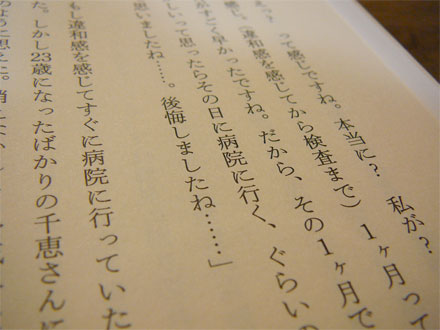 って感じですね。本当に？　私が？
感じ。（違和感を感じてから検査まで）　1ヶ月っ
すごく早かったですね。だから、その1ヶ月で
しいって思ったらその日に病院に行く、ぐらいの
思いましたね……。後悔しましたね……」
もし違和感を感じてすぐに病院に行っていた
た。しかし23歳になったばかりの千恵さんに